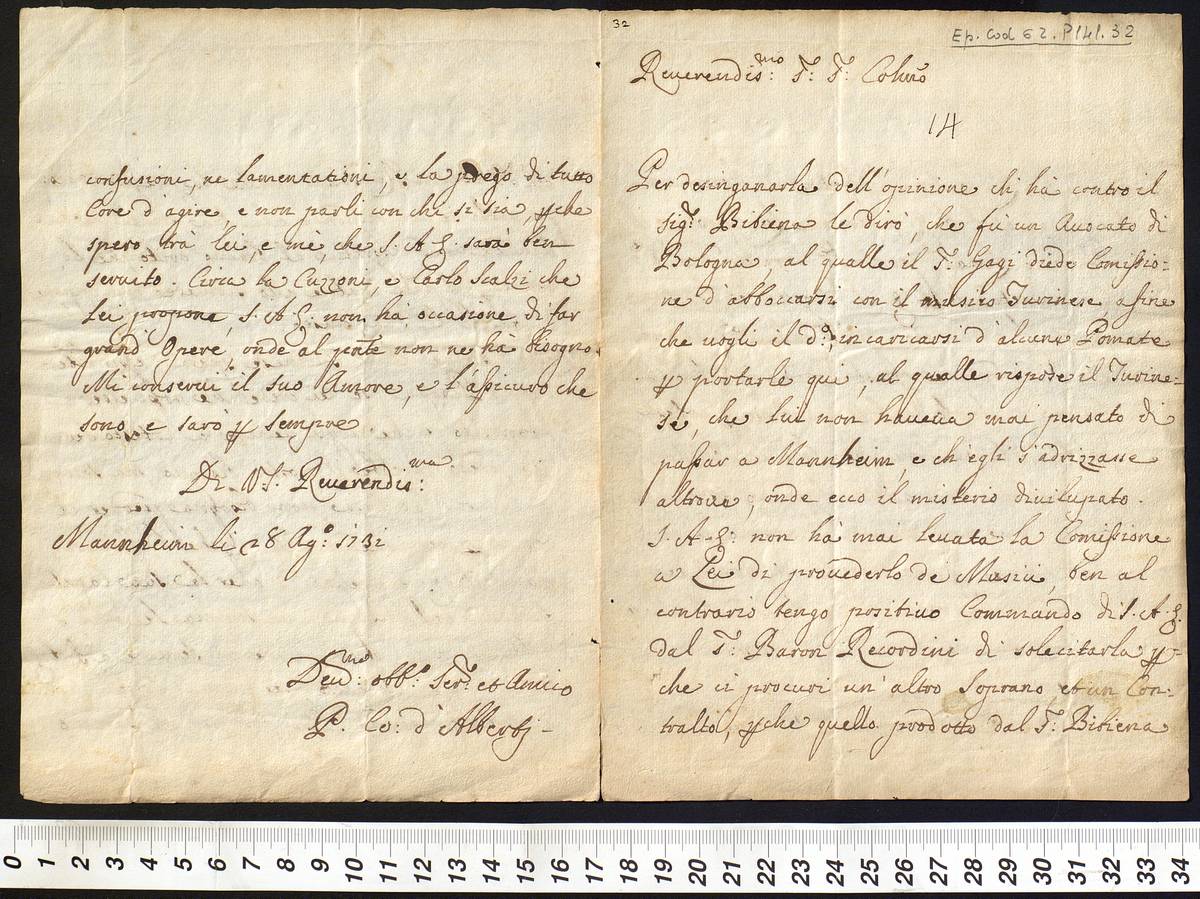 32
Ep. Cod 62. P 141. 32
Reverendis:mo Sr: Sr: Colmo
14
Per desinganarla dell'opinione ch'hà contro il
sigr: Bibiena le dirò, che fù un Avocato di
Bologna, al qualle il Sr: Gagi diede Comissio=
ne d'abboccarsi con il musico Turinese, afine
che vogli il do: incaricarsi d'alcune Pomate
p portarle qui, al qualle rispose il Turine=
se, che lui non haveva mai pensato di
passar a Mannheim e ch'egli s'adrizzasse
altrove, onde ecco il misterio divilupato.
S. A. E: non hà mai levata la Comissione
a Lei di provederlo de Musici, ben al
contrario tengo positivo Commando di S. A. E.
dal Sr: Baron Recordini di solecitarla p=
che ci procuri un'altro Soprano, et un Con=
tralto, pche quello prodotto dal Sr: Bibiena
confusioni, ne lamentationi, e la prego di tutto
Core d'agire, e non parli con chi si sia, pche
spero trà lei e mè, che S. A. E. sarà ben
servito. Circa la Cuzzoni, e Carlo Scalzi che
Lei propone, S. A. E: non hà occasione di far
grand'Opere, onde al pnte non ne hà bisogno.
Mi conservi il suo Amore, e l'assicuro che
sono, e sarò p sempre
Di V. S. Reverendis:ma
Mannheim li 28 Ago: 1731
Devmo: obbo: Serr: et Amico
P. Co: d'Albertj -
0 1 2 3 4 5 6 7 8 9 10 11 12 13 14 15 16 17 18 19 20 21 22 23 24 25 26 27 28 29 30 31 32 33 34